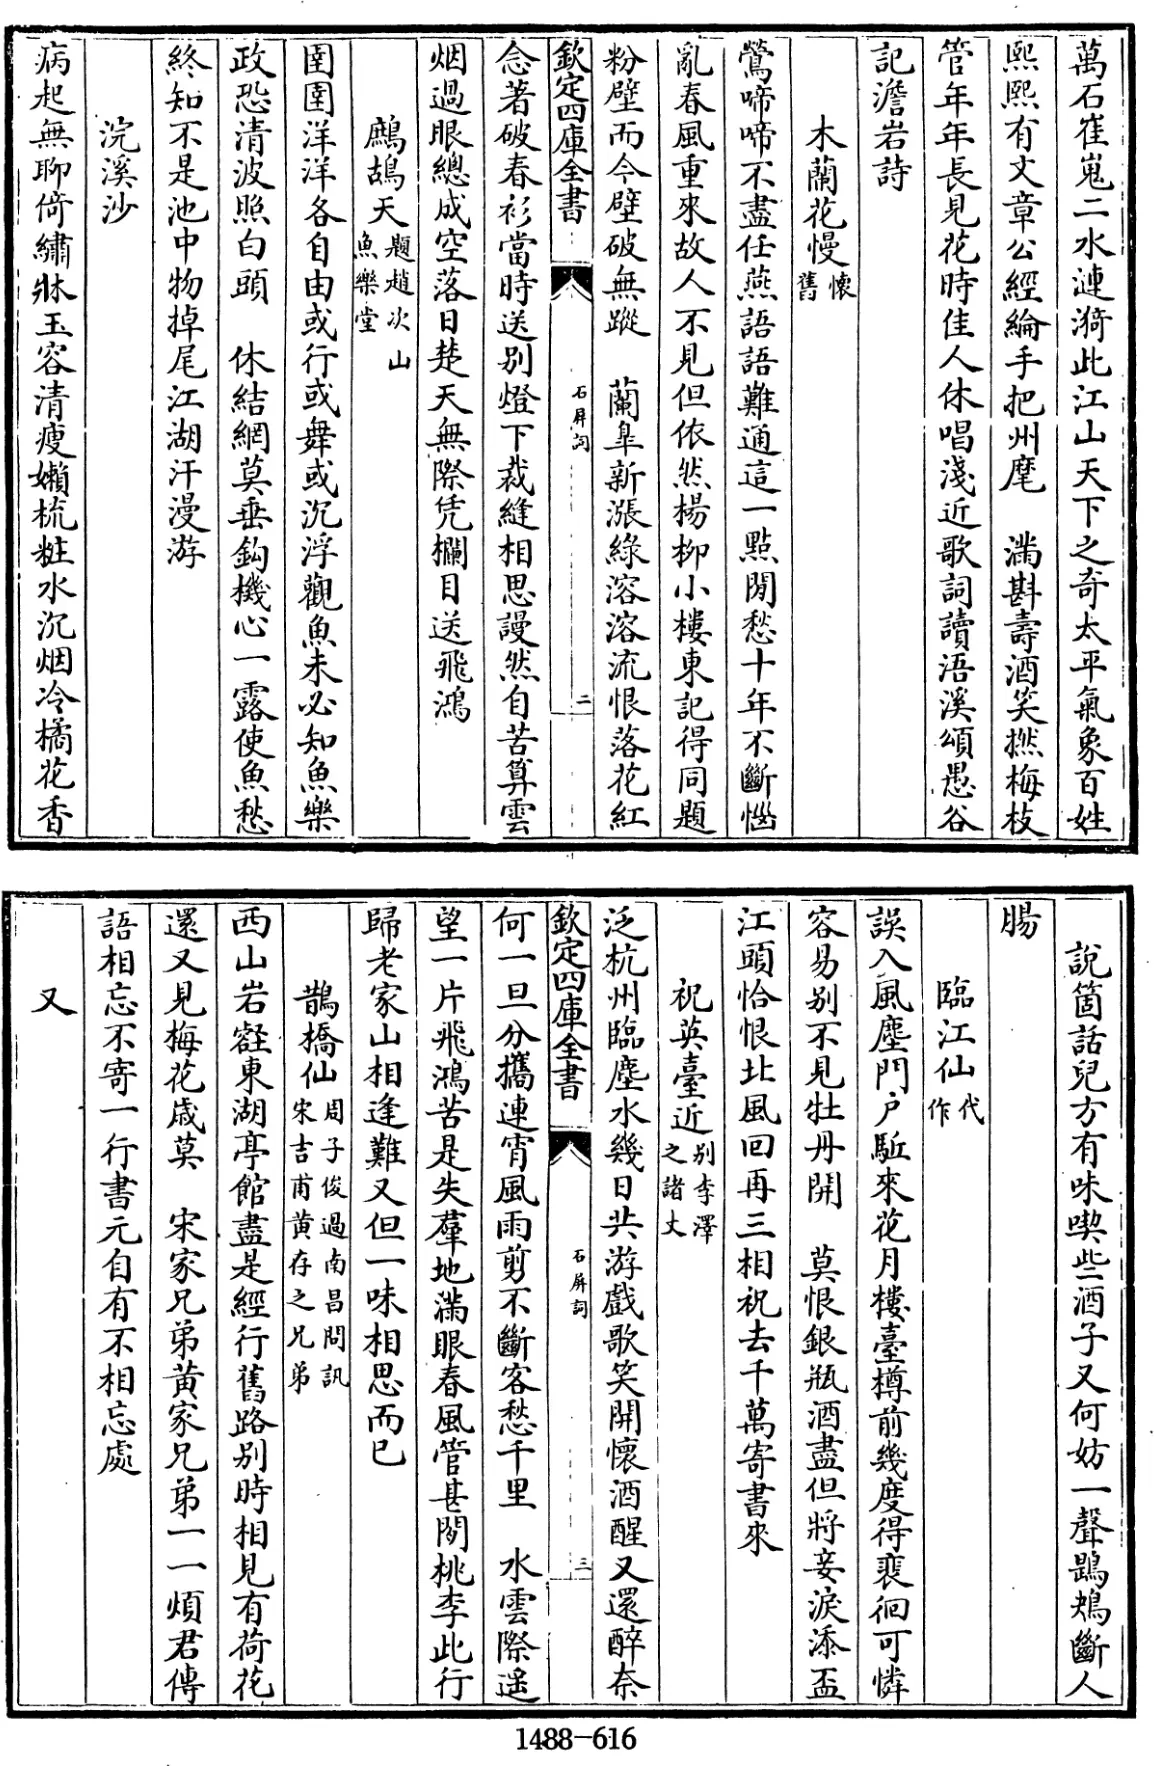 萬石崔嵬二水漣漪此江山天下之奇太平氣象百姓
熙熙有文章公經綸手把州麾　滿斟壽酒笑撚梅枝
管年年長見花時佳人休唱淺近歌詞讀浯溪頌愚谷
記澹岩詩
木蘭花慢懷舊
鶯啼啼不盡任燕語語難通這一點閒愁十年不斷惱
亂春風重來故人不見但依然楊柳小樓東記得同題
粉壁而今壁破無蹤　蘭臯新漲綠溶溶流恨落花紅
欽定四庫全書
石屏詞
二
念著破春衫當時送别燈下裁縫相思謾然自苦算雲
烟過眼總成空落日楚天無際凭欄目送飛鴻
鷓鴣天題趙次山魚樂堂
圉圉洋洋各自由或行或舞或沉浮觀魚未必知魚樂
政恐清波照白頭　休結網莫垂鈎機心一露使魚愁
終知不是池中物掉尾江湖汗漫游
浣溪沙
病起無聊倚繡牀玉容清瘦嬾梳粧水沉烟冷橘花香
説箇話兒方有味喫些酒子又何妨一聲鶗鴂斷人
腸
臨江仙代作
誤入風塵門户駈來花月樓臺樽前幾度得裵徊可憐
容易别不見牡丹開　莫恨銀瓶酒盡但將妾淚添盃
江頭恰恨北風回再三相祝去千萬寄書來
祝英臺近别李澤之諸丈
泛杭州臨塵水幾日共游戲歌笑開懷酒醒又還醉奈
欽定四庫全書
石屏詞
三
何一旦分攜連宵風雨剪不斷客愁千里　水雲際遥
望一片飛鴻苦是失羣地滿眼春風管甚閒桃李此行
歸老家山相逢難又但一味相思而已
鵲橋仙周子俊過南昌問訊宋吉甫黄存之兄弟
西山岩壑東湖亭館盡是經行舊路别時相見有荷花
還又見梅花歲莫　宋家兄弟黄家兄弟一一煩君傳
語相忘不寄一行書元自有不相忘處
又
1488-616